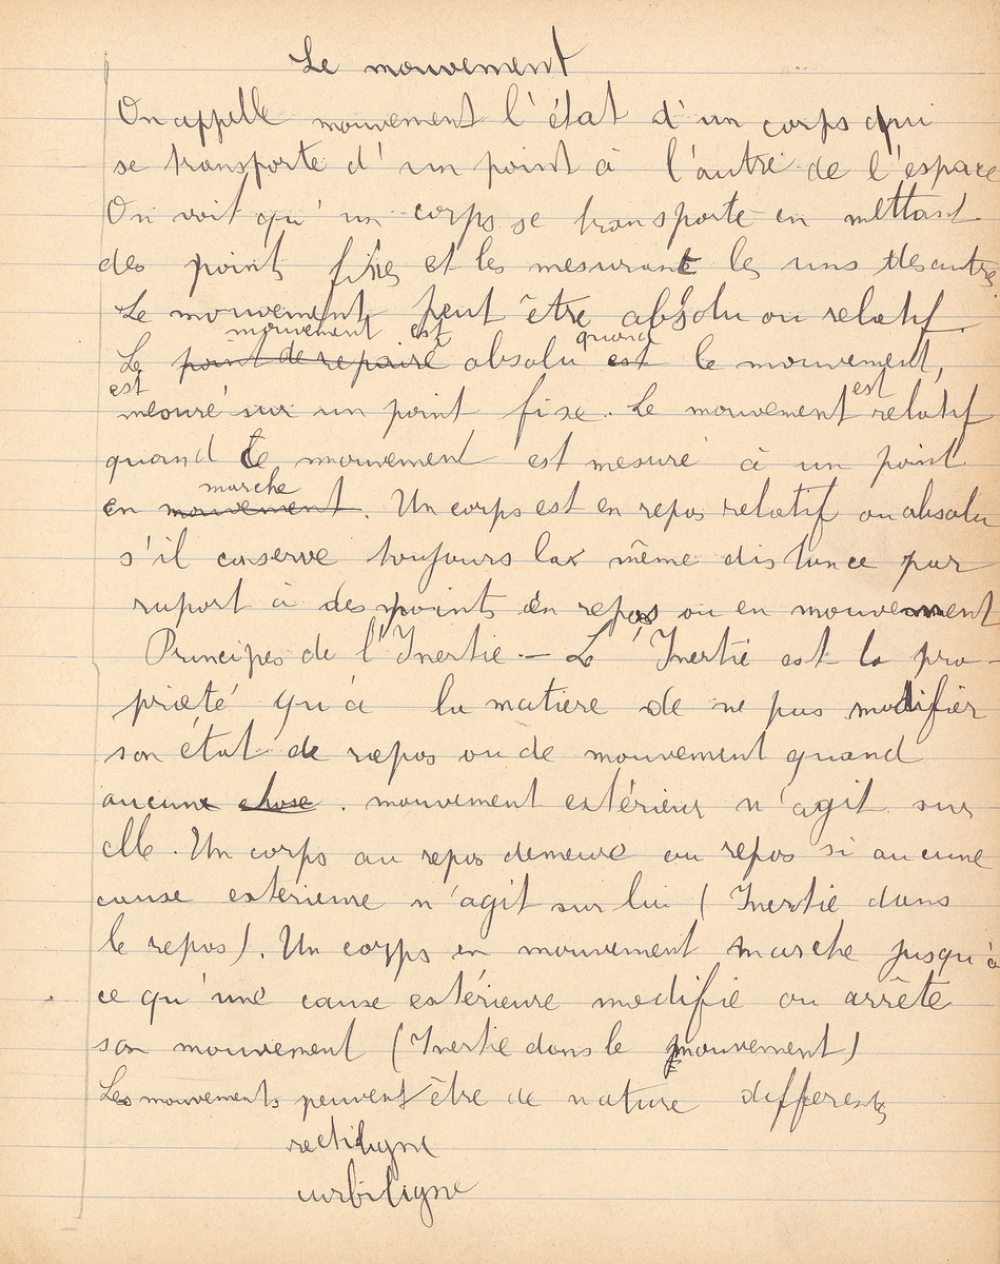 Le mouvement
On appelle mouvement l'état d'un corps qui
se transporte d'un point à l'autre de l'espace
On voit qu'un corps se transporte en mettant
des point fixes et les mesurant les uns des autres.
Le mouvement peut être absolu ou relatif.
mouvement est quand
Le point de repaire absolu est le mouvement,
est est
mesuré sur un point fixe. Le mouvement relatif
quand le mouvement est mesuré à un point
marche
en mouvement. Un corps est en repos relatif ou absolu
s'il conserve toujours la même distance par
raport à des points en repos ou en mouvement
Principes de l'Inertie - L'Inertie est la pro-
priété qu'à la matière de ne pas modifier
son état de repos ou de mouvement quand
aucune chose. mouvement extérieur n'agit sur
elle. Un corps au repos demeure au repos si aucune
cause extérieure n'agit sur lui (Inertie dans
le repos). Un corps en mouvement marche jusqu'à
ce qu'une cause extérieure modifie ou arrête
son mouvement (Inertie dans le mouvement)
Les mouvements peuvent être de nature differents
rectiligne
curbiligne